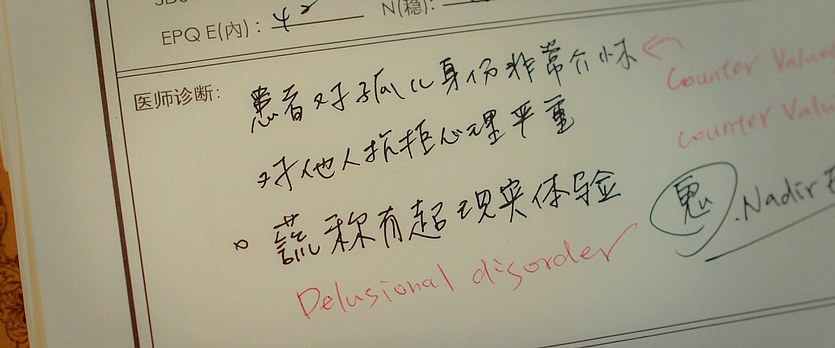 EPQ E(内): 42 N(稳):
医师诊断: 患者对孤儿身份非常介怀 Counter Value
对他人抗拒心理严重 Counter Valu
。谎称有超现实体验 鬼 .Nadir
Delusional disorder